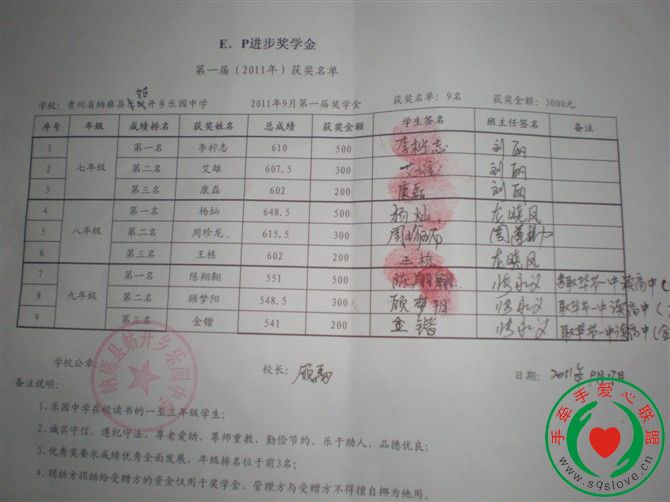 E．P进步奖学金
第一届（2011年）获奖名单
学校：贵州省纳雍县姑开乡乐园中学 2011年9月第一届奖学金 获奖名单：9名 获奖金额：3000元
序号 年级 成绩排名 获奖姓名 总成绩 获奖金额 学生签名 班主任签名 备注
1 七年级 第一名 李柠志 610 500 李柠志 刘丽
2 第二名 艾雄 607.5 300 艾雄 刘丽
3 第三名 康磊 602 200 康磊 刘丽
4 八年级 第一名 杨灿 648.5 500 杨灿 龙晓凤
5 第二名 周珍龙 615.5 300 周珍龙
6 第三名 王栋 602 200 王栋 龙晓凤
7 九年级 第一名 陈翔翱 551 500 陈翔翱
8 第二名 顾梦阳 548.5 300 顾梦阳
9 第三名 金锴 541 200 金锴
学校公章： 校长： 日期：2011年9月17日
纳雍县姑开乡乐园中学
备注说明：
1、乐园中学在校读书的一至三年级学生；
2、诚实守信、遵纪守法、尊老爱幼、尊师重教、勤俭节约、乐于助人、品德优良；
3、优秀奖要求成绩优秀全面发展，年级排名位于前3名；
4、捐助方捐助给受赠方的资金仅用于奖学金，管理方与受赠方不得擅自挪为他用。
手牵手爱心联盟
www.sqslove.cn